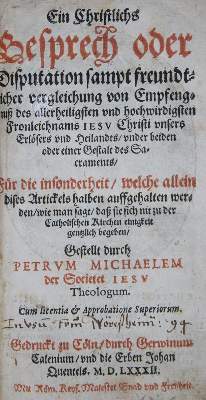 Ein Christlichs
Gesprech oder
Disputation sampt freundt-
licher vergleichung von Empfeng-
nuß des allerheiligsten und hochwirdigsten
Fronleichnams IESV Christi vnsers
Erlösers vnd Heilandes/ vnder beiden
oder einer Gestalt des Sa-
craments/
Für die insonderheit/ welche allein
dises Artickels halben auffgehalten wer-
den/ wie man sagt/ daß sie sich nit zu der
Catholischen Kirchen einigkeit
gentzlich begeben/
Gestellt durch
PETRVM MICHAELEM
der Societet IESV
Theologum.
Cum licentia & Approbatione Superiorum.
94
Gedruckt zu Cöln/ durch Gerwinum
Calenium/ vnd die Erben Johan
Quentels. M. D. LXXXII.
Mit Röm. Keys. Maiestat Gnad vnd Freiheit.